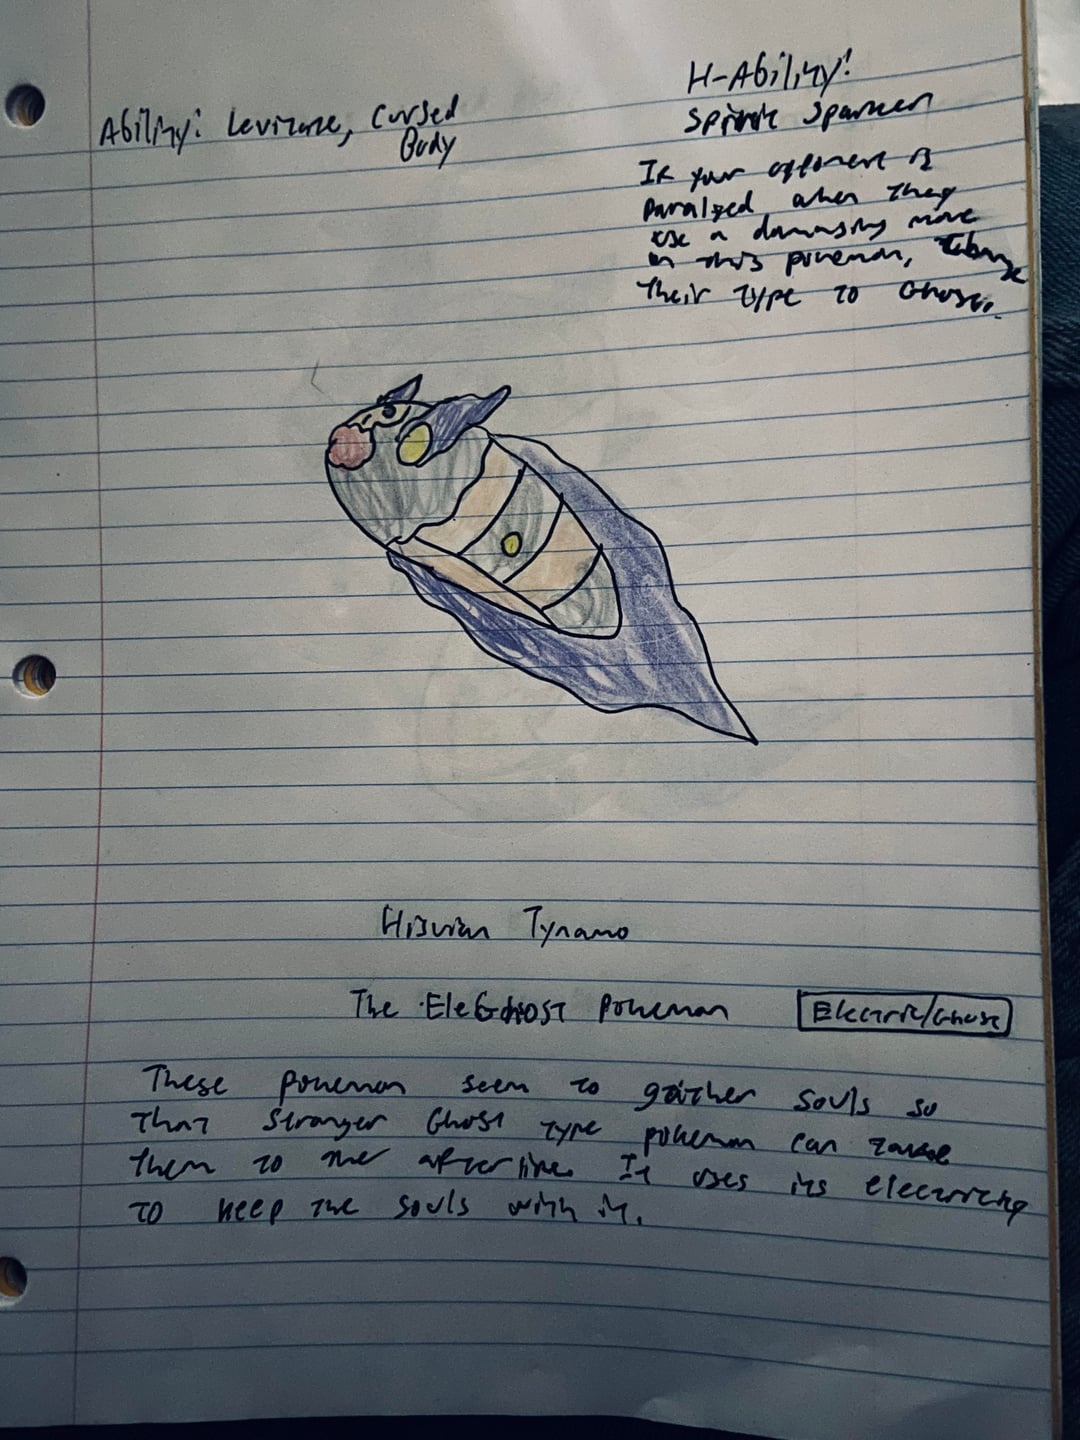 Ability: Levitate, Cursed
Body
H-Ability!
Spirit Sparker
If your opponent is
Paralyzed when they
use a damaging move
on this pokemon, change
their type to Ghost.
Hisuian Tynamo
The EleGhost Pokemon
Electric/Ghost
These pokemon seem to gather souls so
that stronger Ghost type pokemon can take
them to the afterlife. It uses its electricity
to keep the souls with it.